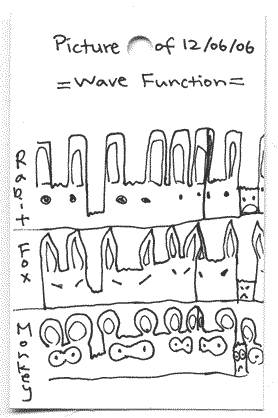 Picture of 12/06/06
=Wave Function=
Rabit
Fox
Monkey